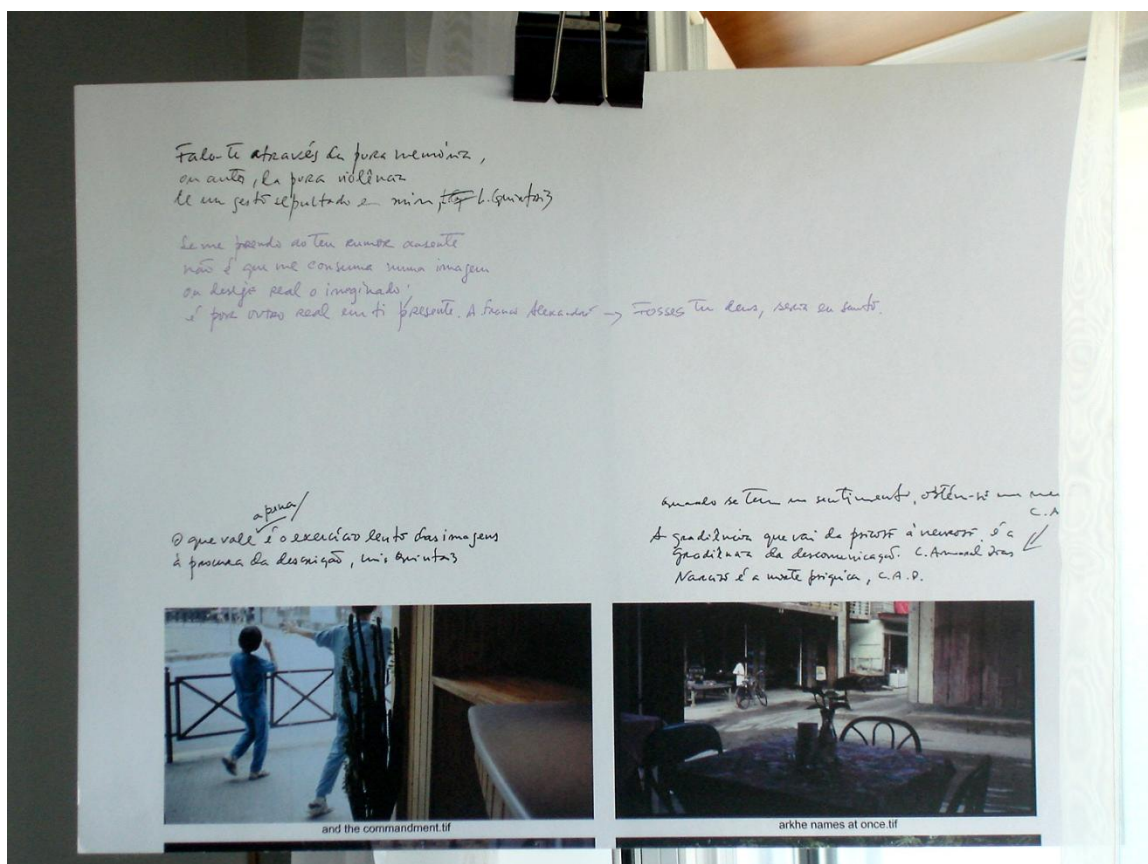 Falo-te através da pura memória,
ou antes, da pura violência
de um gesto sepultado em mim, L. Quintais
Se me prendo ao teu rumor ausente
não é que me consuma numa imagem
ou deseje real o imaginado:
é por outro real em ti presente. A Franco Alexandre → Fosses tu deus, seria eu santo.
apenas
O que vale é o exercício lento das imagens
à procura da descrição, Luís Quintais
quando se tem um sentimento, obtém-se um
C.A
A gradiência que vai da psicose à neurose, é a
gradiência da descomunicação. C. Amaral Dias
Narciso é a morte psíquica, C.A.D.
and the commandment.tif
arkhe names at once.tif